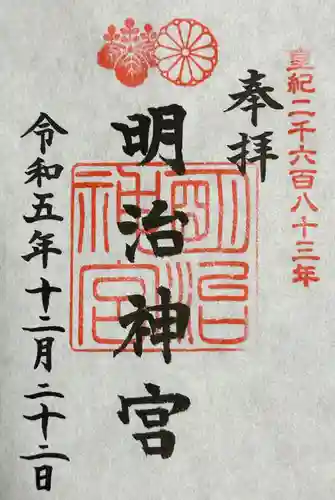 皇紀二千六百八十三年
奉拝
明治神宮
明治神宮
令和五年十二月二十二日